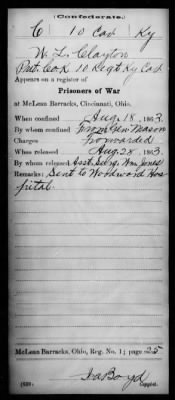 (Confederate.)
C 10 Cav Ky
W. L. Clayton
Pvt. Co A 10 Regt Ky Cav
Appears on a register of
Prisoners of War
at McLean Barracks, Cincinnati, Ohio.
When confined Aug. 18, 1863.
By whom confined From Gen Mason
Charges Forwarded
When released Aug. 28, 1863.
By whom released Asst. Surg. Wm Jones
Remarks: Sent to Woodward Hos
pital.
McLean Barracks, Ohio, Reg. No. 1; page 25
Ira Boyd
(639) Copyist.